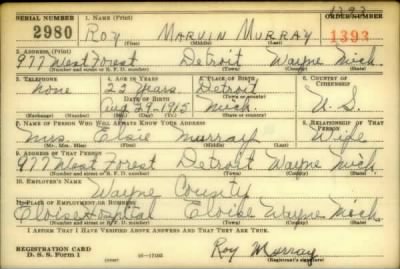 1393
SERIAL NUMBER 1. NAME (Print) ORDER NUMBER
2980 ROY MARVIN MURRAY 1393
(First) (Middle) (Last)
2. ADDRESS (Print)
977 West Forest Detroit Wayne Mich.
(Number and street or R. F. D. number) (Town) (County) (State)
3. TELEPHONE 4. AGE IN YEARS 5. PLACE OF BIRTH 6. COUNTRY OF CITIZENSHIP
none 25 years Detroit
DATE OF BIRTH (Town or county)
Aug 29-1915 Mich. U. S.
(Exchange) (Number) (Mo.) (Day) (Yr.) (State or country)
7. NAME OF PERSON WHO WILL ALWAYS KNOW YOUR ADDRESS 8. RELATIONSHIP OF THAT PERSON
Mrs. Elsie Murray Wife
(Mr., Mrs., Miss) (First) (Middle) (Last)
9. ADDRESS OF THAT PERSON
977 West Forest Detroit Wayne Mich.
(Number and street or R. F. D. number) (Town) (County) (State)
10. EMPLOYER'S NAME
Wayne County
11. PLACE OF EMPLOYMENT OR BUSINESS
Eloise Hospital Eloise Wayne Mich.
(Number and street or R. F. D. number) (Town) (County) (State)
I AFFIRM THAT I HAVE VERIFIED ABOVE ANSWERS AND THAT THEY ARE TRUE.
REGISTRATION CARD
D. S. S. Form 1 Roy Murray